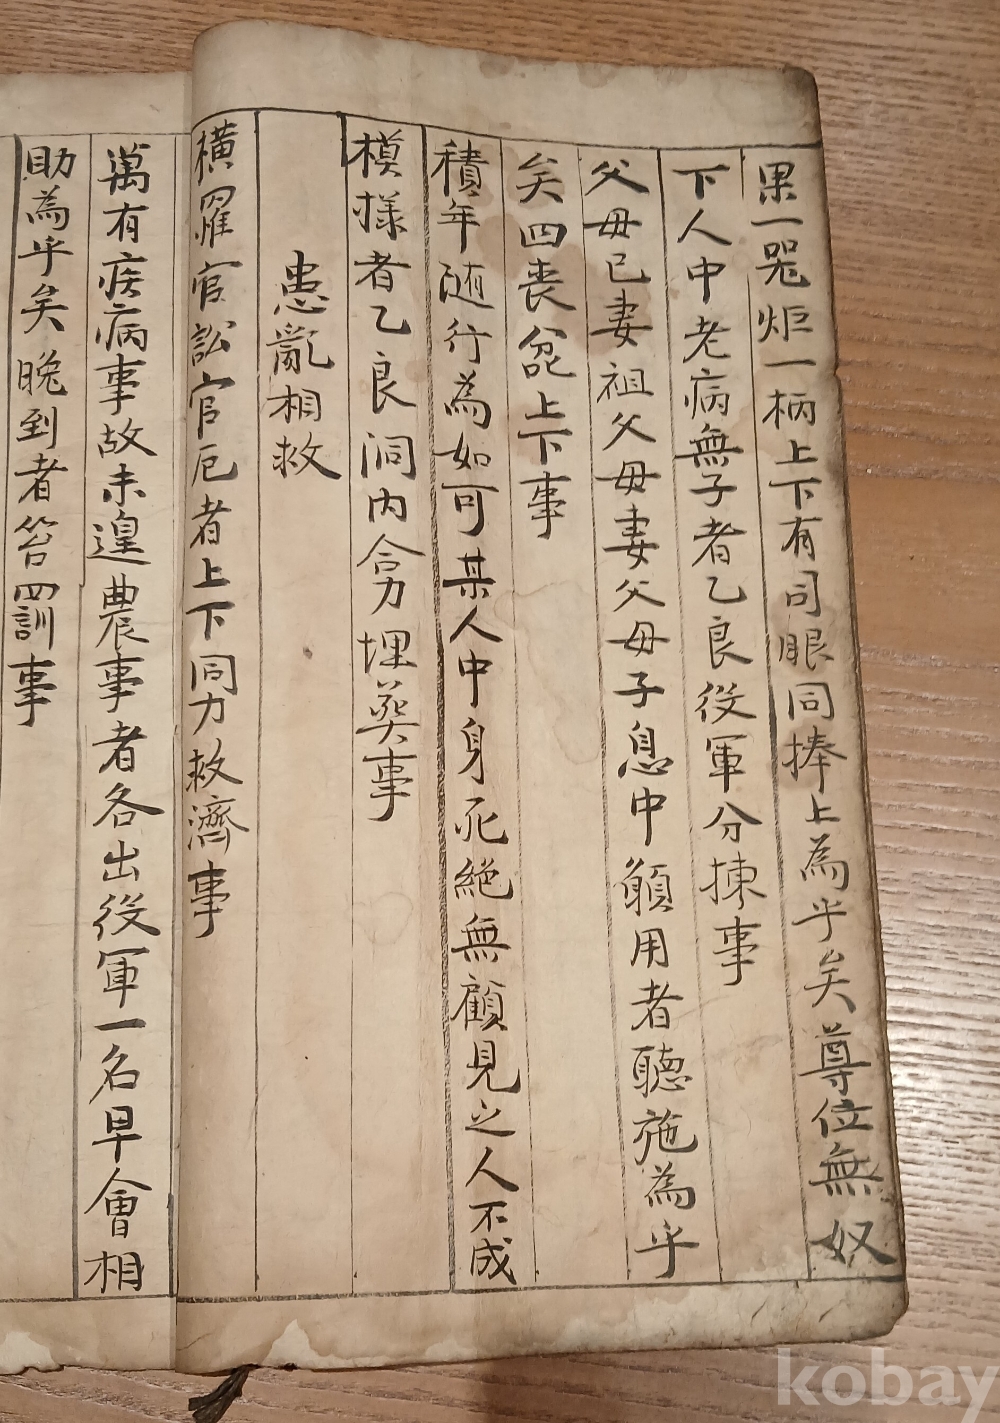 果一咒炬一柄上下有司眼同捧上為乎矣尊位無奴
下人中老病無子者乙良役軍分揀事
父母己妻祖父母妻父母子息中願用者聽施為乎
矣四喪分叱上下事
積年随行為如可某人中身死絶無顧見之人不成
模樣者乙良洞内合力埋葬事
患亂相救
橫罹官訟官厄者上下同力救濟事
萬有疾病事故未遑農事者各出役軍一名早會相
助為乎矣晩到者笞四訓事
kobay